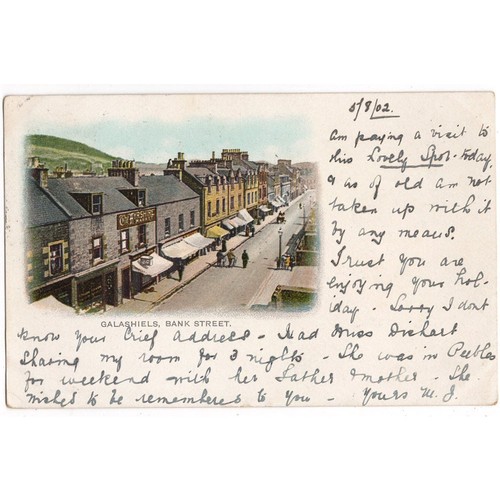 5/8/02.
Am paying a visit to
this Lovely Spot - today
& as of old am not
taken up with it
by any means.
Trust you are
enjoying your hol-
iday - Sorry I dont
GALASHIELS, BANK STREET.
know your Crief Address - Had Miss Dishart
Sharing my room for 3 nights - She was in Peebles
for weekend with her Father & mother - She
wished to be remembered to you - Yours M. J.